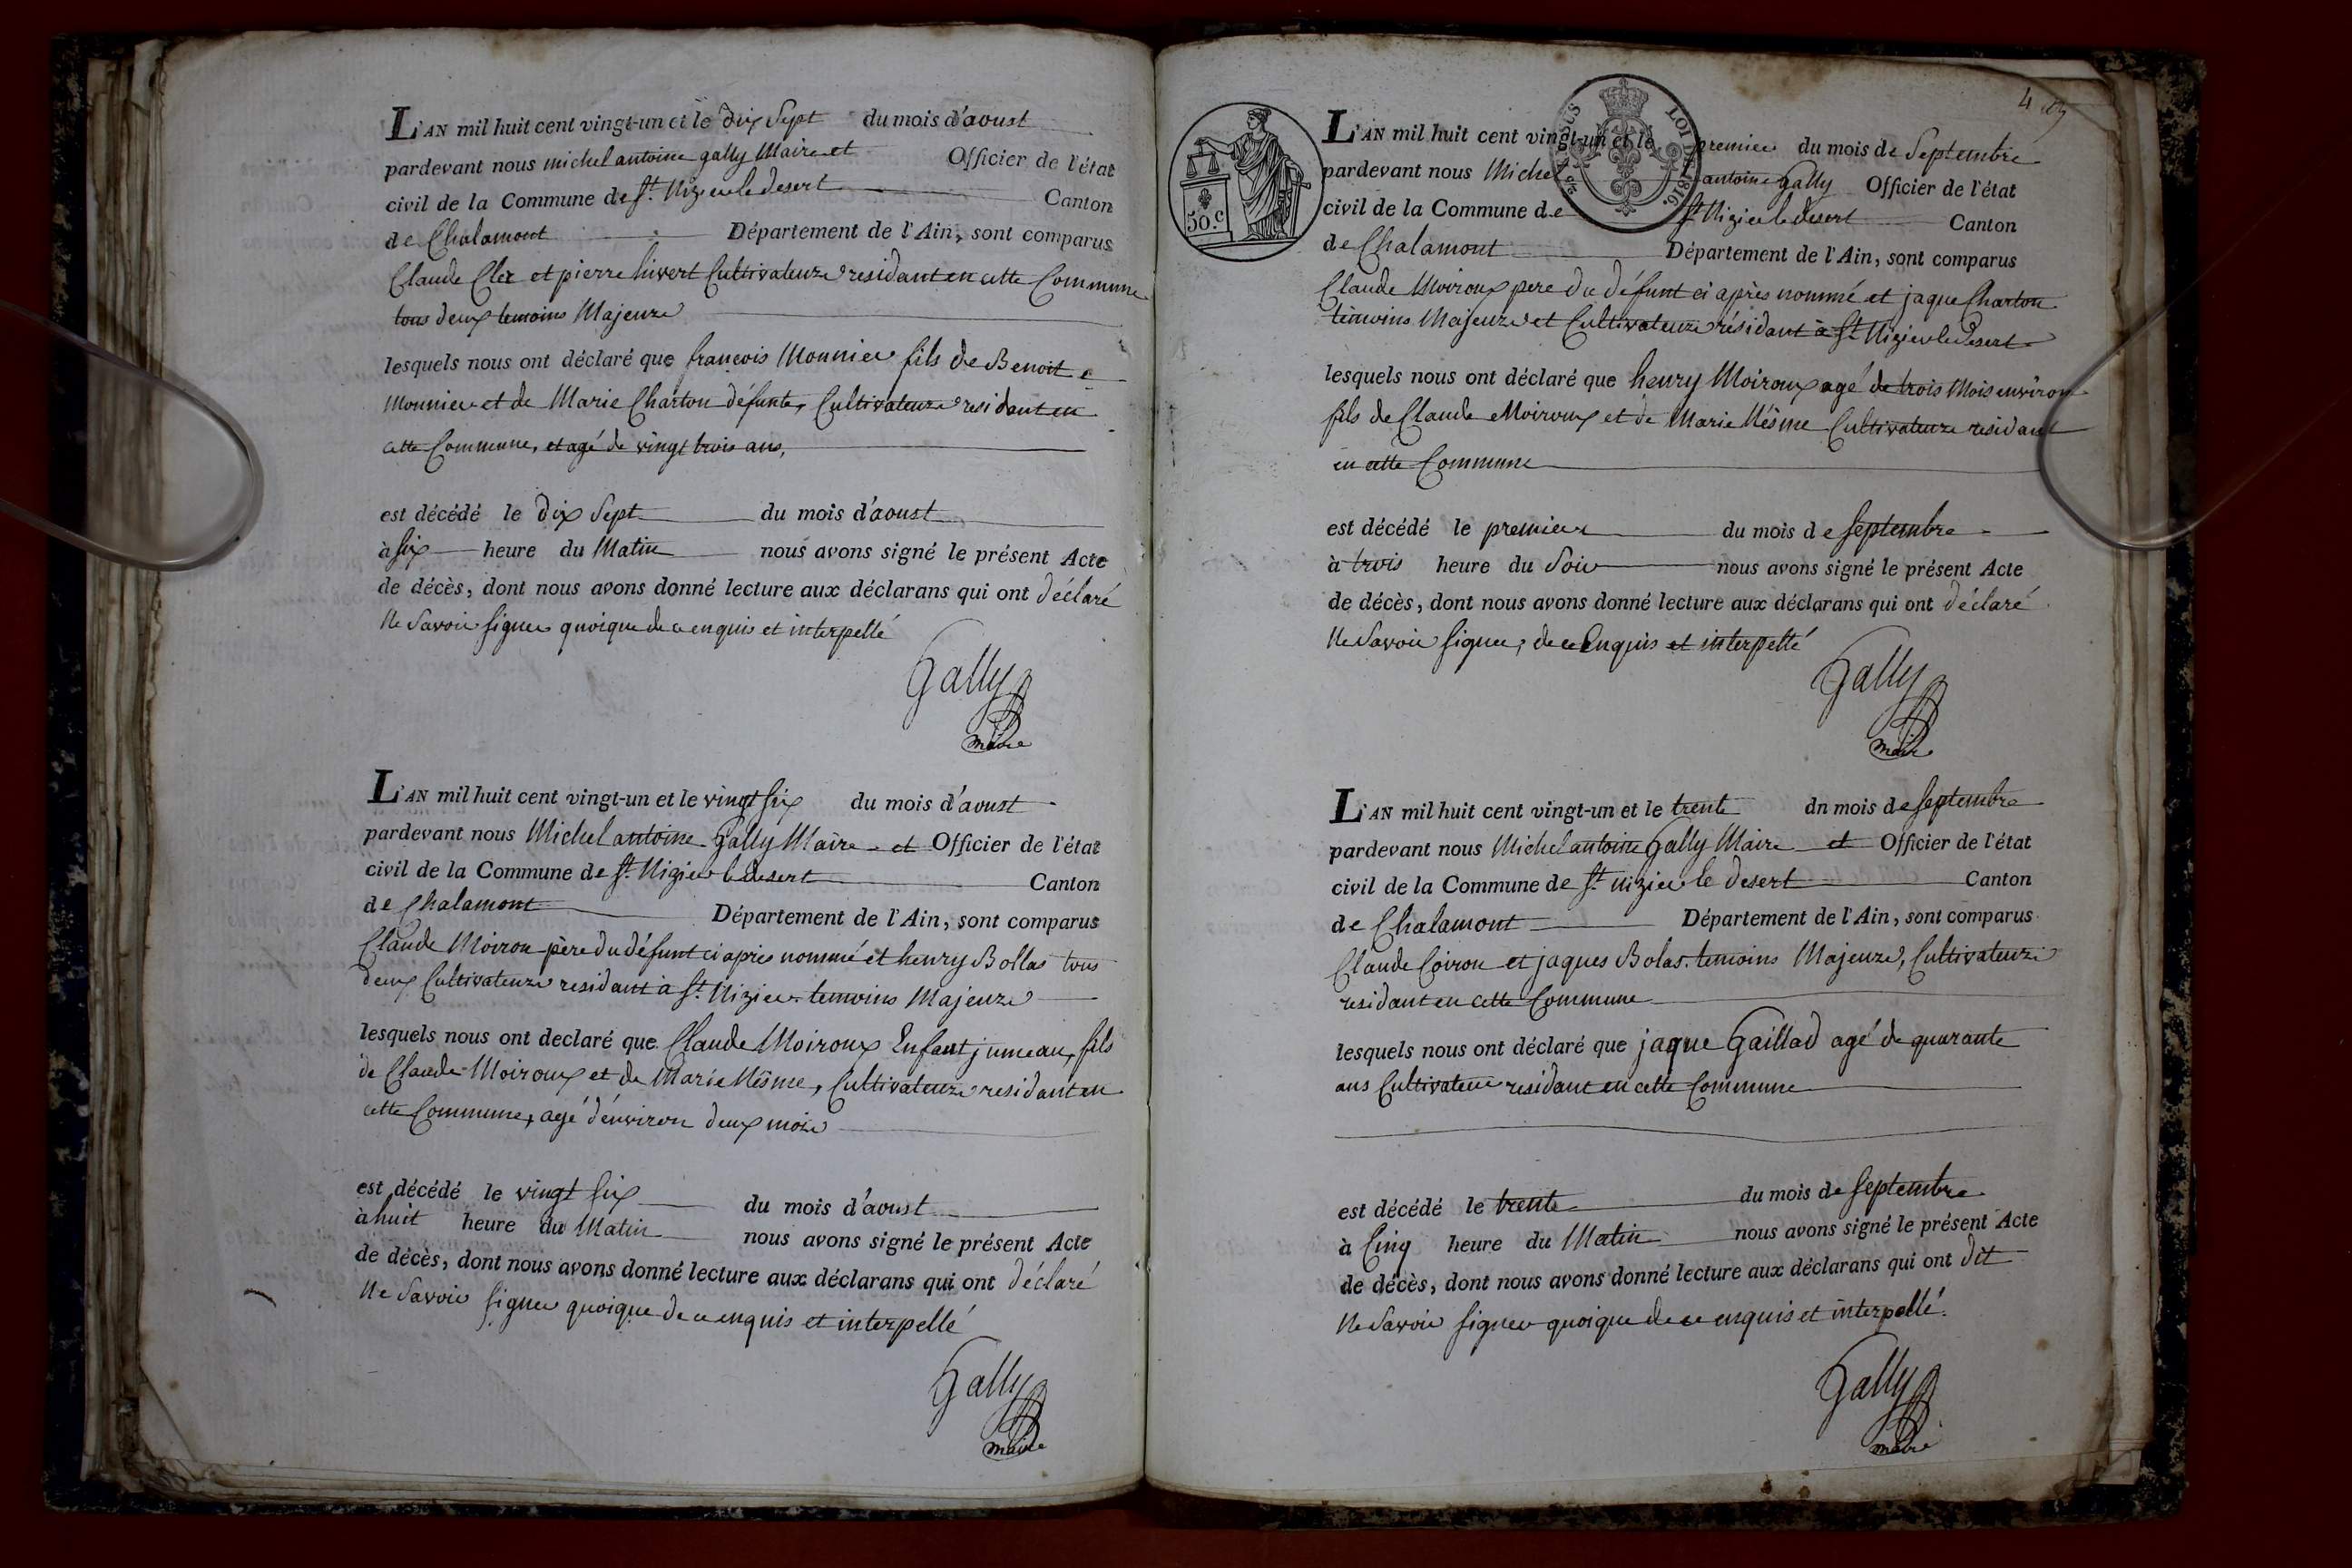 L'AN mil huit cent vingt-un et le dix Sept du mois d'aoust
pardevant nous michel antoine gally Maire et Officier de l'état
civil de la Commune de St. Nizier le desert Canton
de Chalamont Département de l'Ain, sont comparus
Claude Cler et pierre hivert Cultivateurs residant en cette Commune
tous deux temoins Majeurs
lesquels nous ont déclaré que francois Monnier fils de Benoit
monnier et de Marie Charton défunte, Cultivateurs residant en
cette Commune, et agé de vingt trois ans,
est décédé le dix Sept du mois d'aoust
à six heure du Matin nous avons signé le présent Acte
de décès, dont nous avons donné lecture aux déclarans qui ont déclaré
Ne Savoir signer quoique de ce enquis et interpellé
Gally
maire
L'AN mil huit cent vingt-un et le vingt six du mois d'aoust
pardevant nous Michel antoine Gally Maire et Officier de l'état
civil de la Commune de St. Nizier le desert Canton
de Chalamont Département de l'Ain, sont comparus
Claude Moiron père du défunt ci apres nommé et henry Bollas tous
deux Cultivateurs residant à St. Nizier temoins Majeurs
lesquels nous ont declaré que Claude Moiroux Enfant jumeau, fils
de Claude Moiroux et de Marie Mésme, Cultivateurs residant en
cette Commune, agé d'environ deux mois
est décédé le vingt six du mois d'aoust
à huit heure du Matin nous avons signé le présent Acte
de décès, dont nous avons donné lecture aux déclarans qui ont déclaré
Ne Savoir signer quoique de ce enquis et interpellé
Gally
maire
4
50.c
LOI DE 1816.
L'AN mil huit cent vingt-un et le premier du mois de Septembre
pardevant nous Michel antoine Gally Officier de l'état
civil de la Commune de St Nizier le desert Canton
de Chalamont Département de l'Ain, sont comparus
Claude Moiroux pere du défunt ci après nommé et jaque Charton
témoins Majeurs et Cultivateurs résidant à St Nizier le Desert
lesquels nous ont déclaré que henry Moiroux agé de trois Mois environ
fils de Claude Moiroux et de Marie Mésme Cultivateurs residant
en cette Commune
est décédé le premier du mois de septembre
à trois heure du Soir nous avons signé le présent Acte
de décès, dont nous avons donné lecture aux déclarans qui ont déclaré
Ne Savoir signer, de ce Enquis et interpellé
Gally
maire
L'AN mil huit cent vingt-un et le trente dn mois de septembre
pardevant nous Michel antoine Gally Maire et Officier de l'état
civil de la Commune de St. nizier le Desert Canton
de Chalamont Département de l'Ain, sont comparus
Claude Coiron et jaques Bolas temoins Majeurs, Cultivateurs
residant en cette Commune
lesquels nous ont déclaré que jaque Gaillad agé de quarante
ans Cultivateur residant en cette Commune
est décédé le trente du mois de septembre
à Cinq heure du Matin nous avons signé le présent Acte
de décès, dont nous avons donné lecture aux déclarans qui ont dit
Ne Savoir signer quoique de ce enquis et interpellé.
Gally
maire